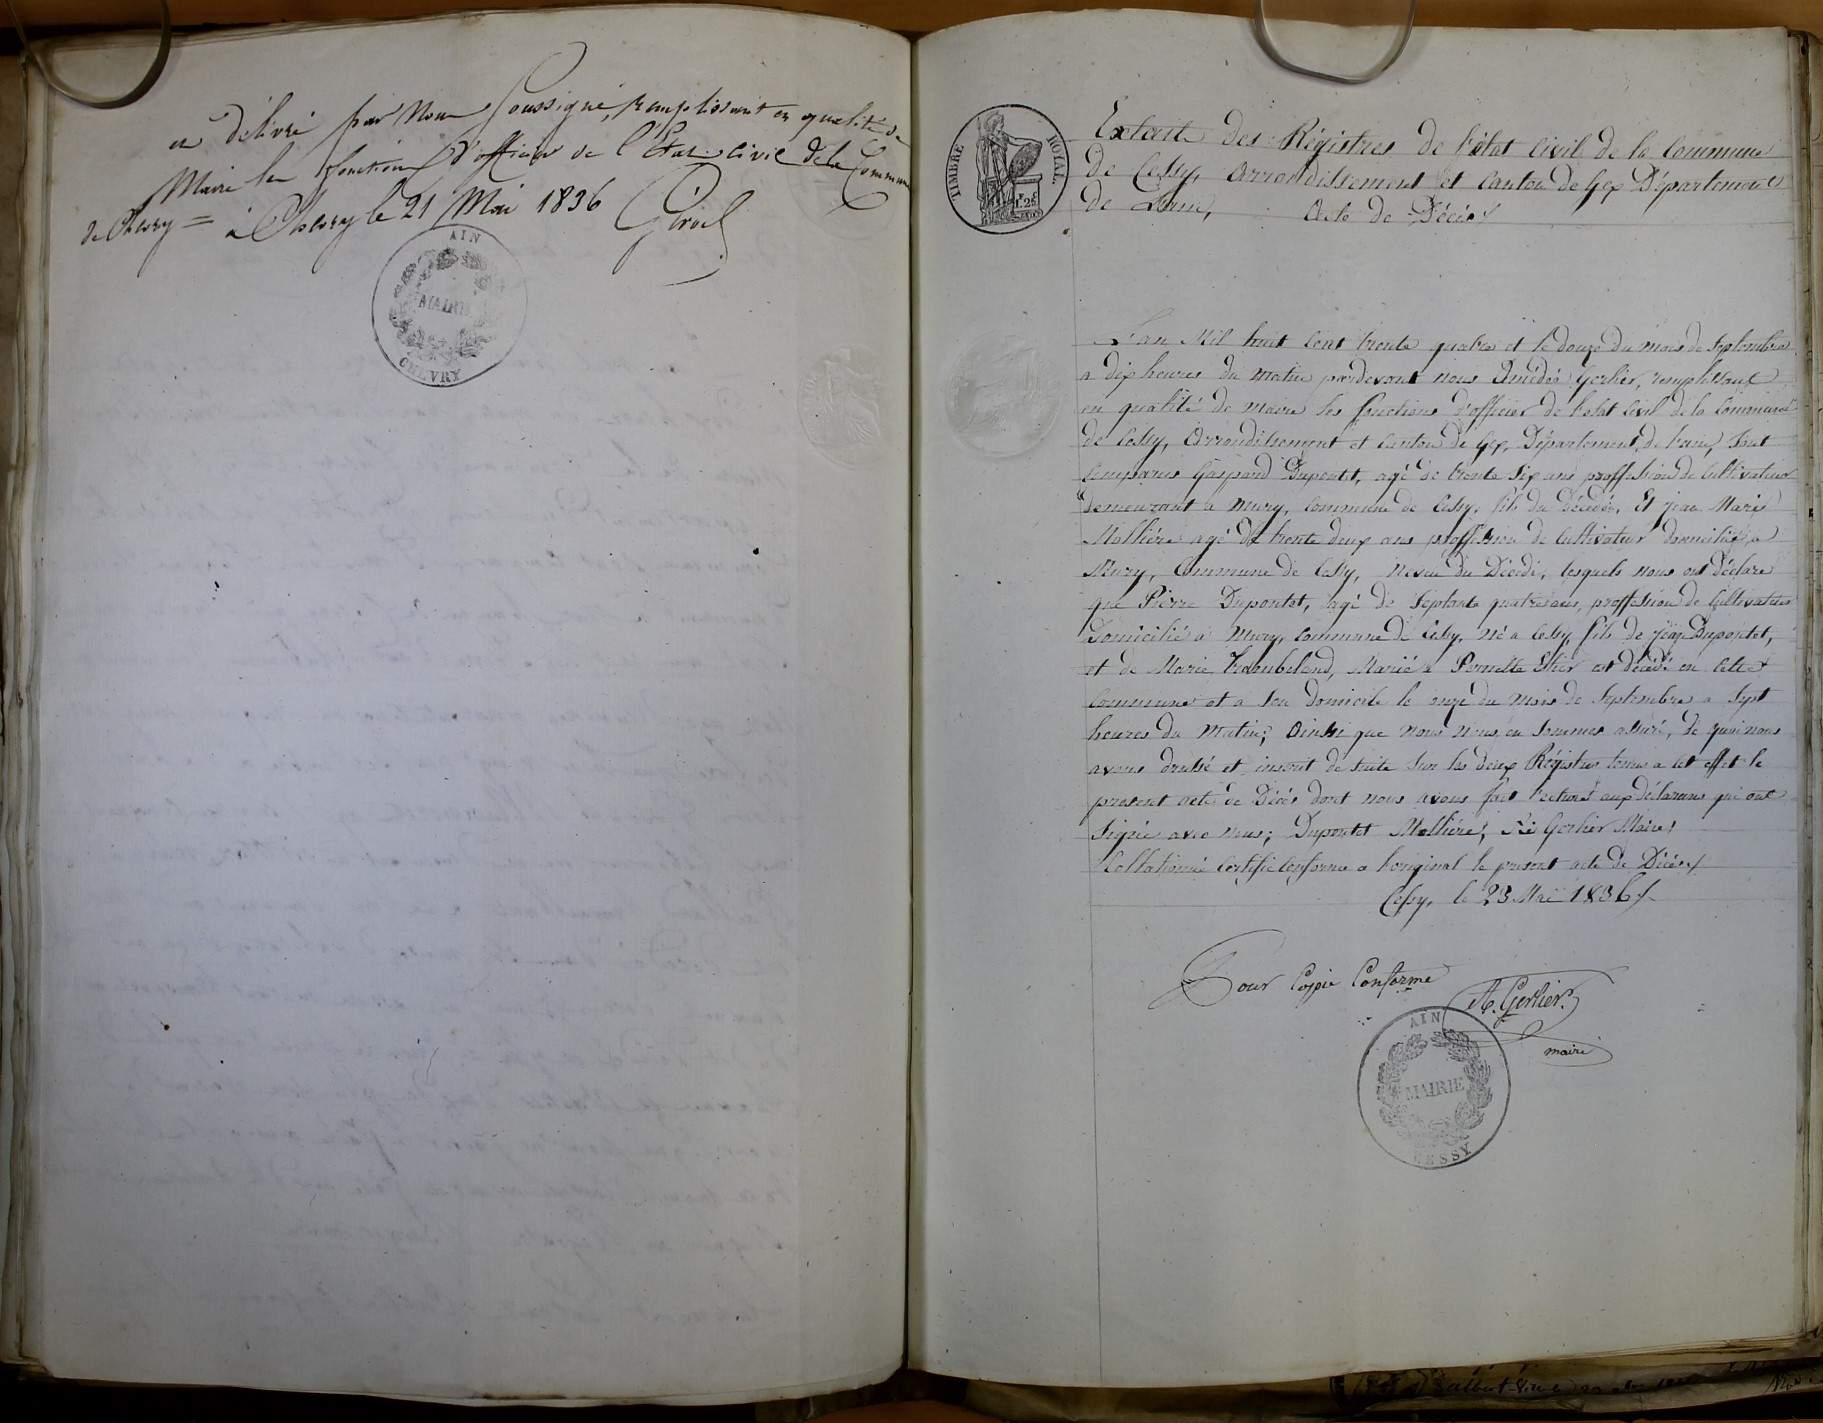 et délivré par Nous Soussigné, remplissant en qualité de
Maire les fonctions d'officier de l'Etat-civil de la Commune
de Chevry = à Chevry le 21 Mai 1836
AIN
MAIRIE
CHEVRY
TIMBRE ROYAL
1F 25
Extrait des Régistres de l'état Civil de la Commune
de Cessy, arrondissement et Canton de Gex Département
de Lain, Acte de Décès
L'an Mil huit Cent trente quatre et le douze du mois de Septembre
a dix heures du matin pardevant nous Amédée Gerlier, remplissant
en qualité de maire les fonctions d'officier de l'état Civil de la Commune
de Cessy, Arrondissement et Canton de Gex, Département de l'ain, Sont
Comparus Gaspard Dupontet, agé de trente Six ans proffession de Cultivateur
demeurant a Mury, Commune de Cessy, fils du Décédé, Et jean Marie
Mollière agé de trente deux ans proffession de Cultivateur domicilié a
Mury, Commune de Cessy, neveu du Décédé, lesquels nous ont Déclaré
que Pierre Dupontet, agé de Septante quatre ans, proffession de Cultivateur
Domicilié a Mury, Commune de Cessy, né a Cessy, fils de jean Dupontet,
et de Marie Marié a Pernette est décédé en Cette
Commune et a Son domicile le onze du Mois de Septembre a Sept
heures du Matin; Ainsi que Nous Nous en Sommes assuré, de quoi nous
avons dressé et inscrit de Suite Sur les deux Régistres tenus a Cet effet le
présent acte de Décès dont nous avons fait Lecture aux Déclarans qui ont
Signée avec Nous; Dupontet Mollière, Gerlier Maire;
Collationné Certifié Conforme a l'original le présent acte de Décès
Cessy, le 23 Mai 1836
Pour Copie Conforme
A. Gerlier
maire
AIN
MAIRIE
CESSY